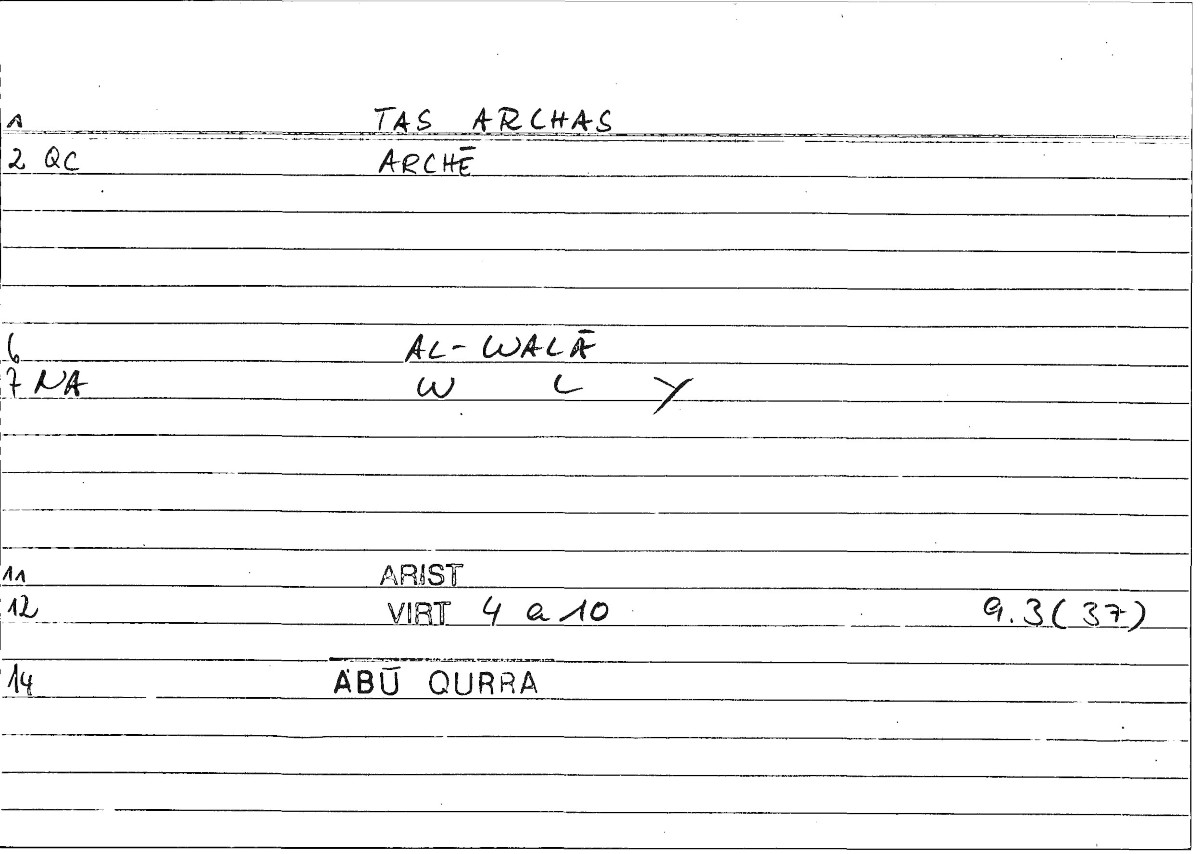 1 TAS ARCHAS
2 QC ARCHĒ
6 AL-WALĀ
7 NA W L Y
11 ARIST
12 VIRT 4 a 10 9.3(37)
14 ABŪ QURRA